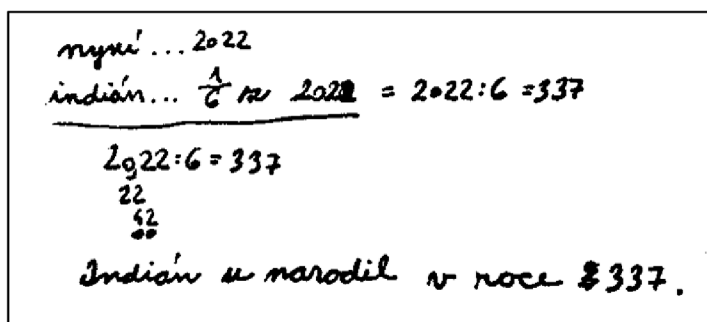 nyní... 2022
indián... 1/6 z 2022 = 2022:6 = 337
2022:6 = 337
22
42
00
Indián se narodil v roce 337.